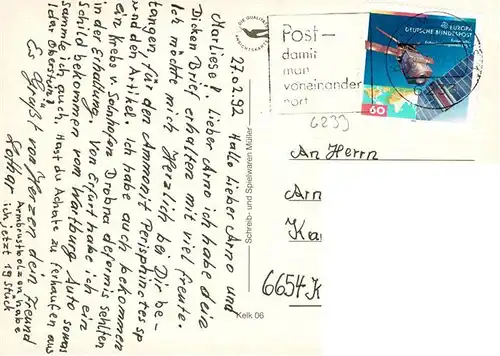 27.02.92 Hallo lieber Arno und
Marliese! Lieber Arno ich habe dein
Dicken Brief erhalten mit viel freute.
Ich möchte mich Herzlich bei Dir be-
tangen, für den Ammonit Perisphinctes sp
und den Artikel. Ich habe auch bekommen
ein Krebs v. Solnhofen Drobna deformis selten
in der Erhaltung. Von Erfurt habe ich ein
Schild bekommen vom Wartburg Auto sowas
sammle ich auch. Hast du Achate zu ferkaufen aus
Idar Oberstein?
Es Grüßt von Herzen dein Freund
Lothar
Armbrustbolzen habe
ich jetzt 19 Stück
Schreib- und Spielwaren Müller
Kelk 06
DIE QUALITÄTS
Post-
damit
man
voneinander
hört
EUROPA
DEUTSCHE BUNDESPOST
60
6239
An Herrn
Arn
Ka
6654 K